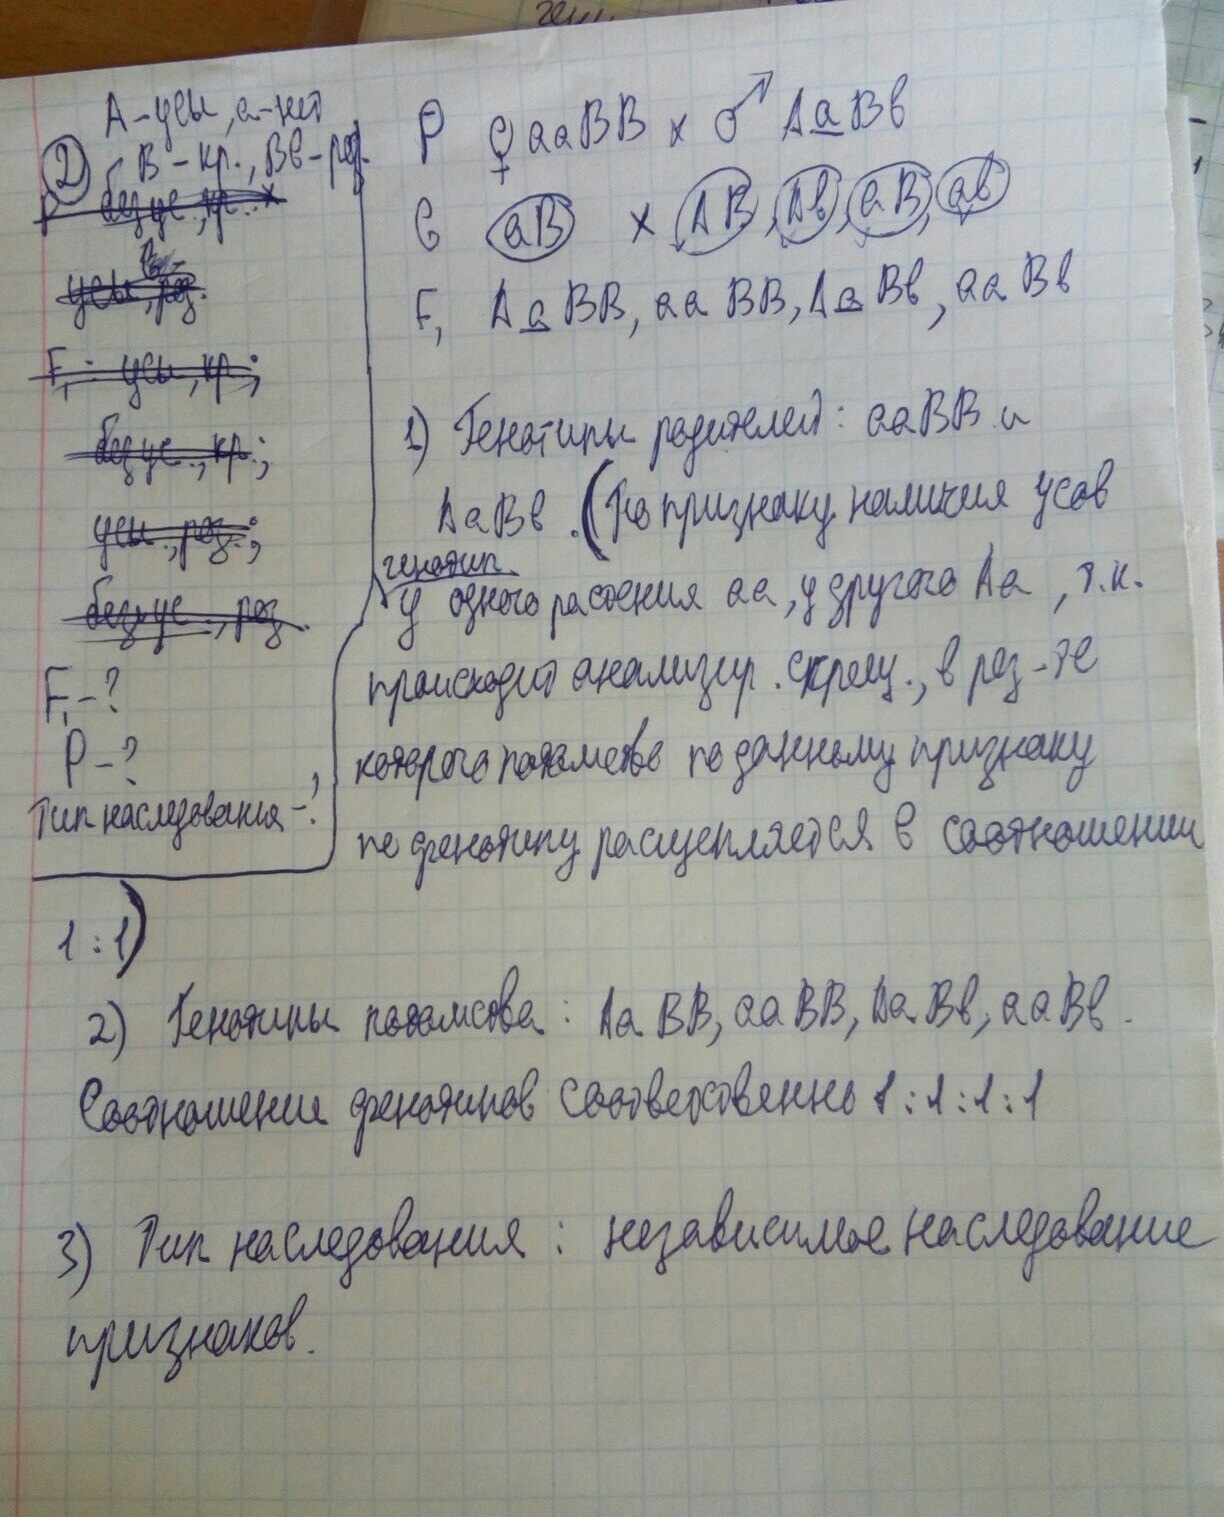 ген.
А-усы, а-нет
② В-кр., Вв-роз.
Р безус., кр. х
усы, роз.
F₁: усы, кр.;
безус., кр.;
усы, роз.;
безус., роз.
F₁-?
Р-?
Тип наследования-?
Р ♀ ааВВ х ♂ АаВв
G аВ х АВ, Ав, аВ, ав
F₁ АаВВ, ааВВ, АаВв, ааВв
1) Генотипы родителей: ааВВ и
АаВв. (По признаку наличия усов
генотип
у одного растения аа, у другого Аа, т.к.
происходит анализир. скрещ., в рез-те
которого потомство по данному признаку
по фенотипу расщепляется в соотношении
1:1)
2) Генотипы потомства: АаВВ, ааВВ, АаВв, ааВв.
Соотношение фенотипов соответственно 1:1:1:1
3) Тип наследования: независимое наследование
признаков.